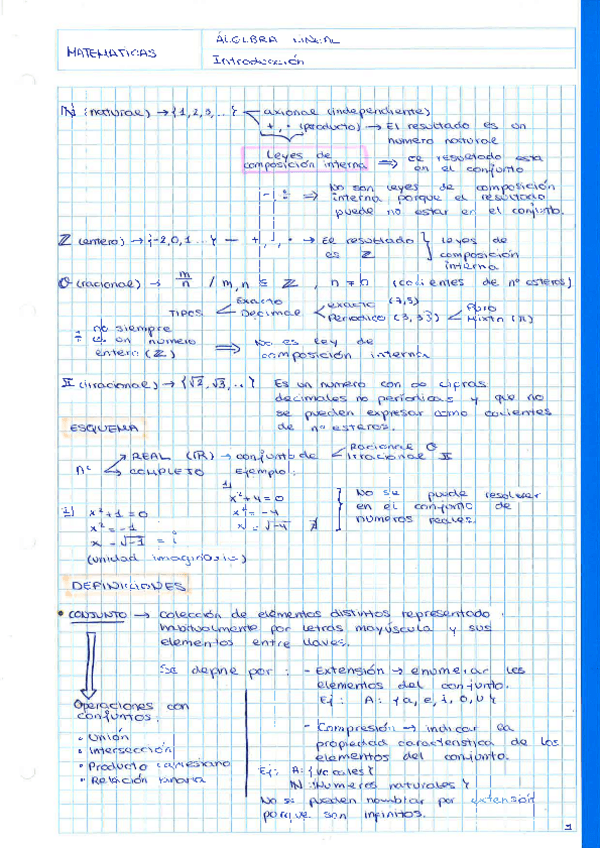 MATEMATICAS
ÁLGEBRA LINEAL
Introducción
ℕ (natural) → {1,2,3,...} axional (independiente)
+, · (producto) → El resultado es un
numero natural
Leyes de
composición interna ⇒ El resultado esta
en el conjunto
- , ÷ ⇒ No son leyes de composición
interna porque el resultado
puede no estar en el conjunto.
ℤ (entero) → {-2,0,1...} — +, -, · → El resultado } leyes de
es ℤ composición
interna
Q (racional) → m/n / m,n ∈ ℤ, n ≠ 0 (cocientes de nº enteros)
TIPOS < Exacto
Decimal < exacto (7,5)
Periodico (3,33) < Puro
Mixto
÷ no siempre
un numero
entero (ℤ) ⇒ No es ley de
composición interna
II (irracional) → {√2, √3, ..} Es un numero con ∞ cifras
decimales no periodicas y que no
se pueden expresar como cocientes
de nº enteros.
ESQUEMA
Nº REAL (ℝ) → conjunto de < Racional Q
Irracional II
COMPLETO Ejemplo:
1)
x²+4=0
x²=-4
x=√-4 ∄
No se puede resolver
en el conjunto de
numeros reales.
i) x²+1=0
x²=-1
x=√-1 = i
(unidad imaginaria)
DEFINICIONES
• CONJUNTO → colección de elementos distintos representado
habitualmente por letras mayúscula y sus
elementos entre llaves.
Se define por : - Extensión → enumerar los
elementos del conjunto.
Ej: A: {a, e, i, o, u}
- Compresión → indicar la
propiedad característica de los
elementos del conjunto.
Ej: A:{vocales}
ℕ :{Numeros naturales}
No se pueden nombrar por extensión
porque son infinitos.
Operaciones con
conjuntos:
• Unión
• Intersección
• Producto cartesiano
• Relación binaria
1